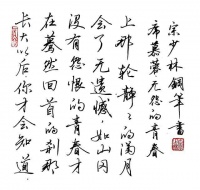 长大以后你才会知道
在蓦然回首的刹那
没有怨恨的青春才
会了无遗憾如山冈
上那轮静静的满月
席慕蓉无怨的青春
宗少林钢笔书